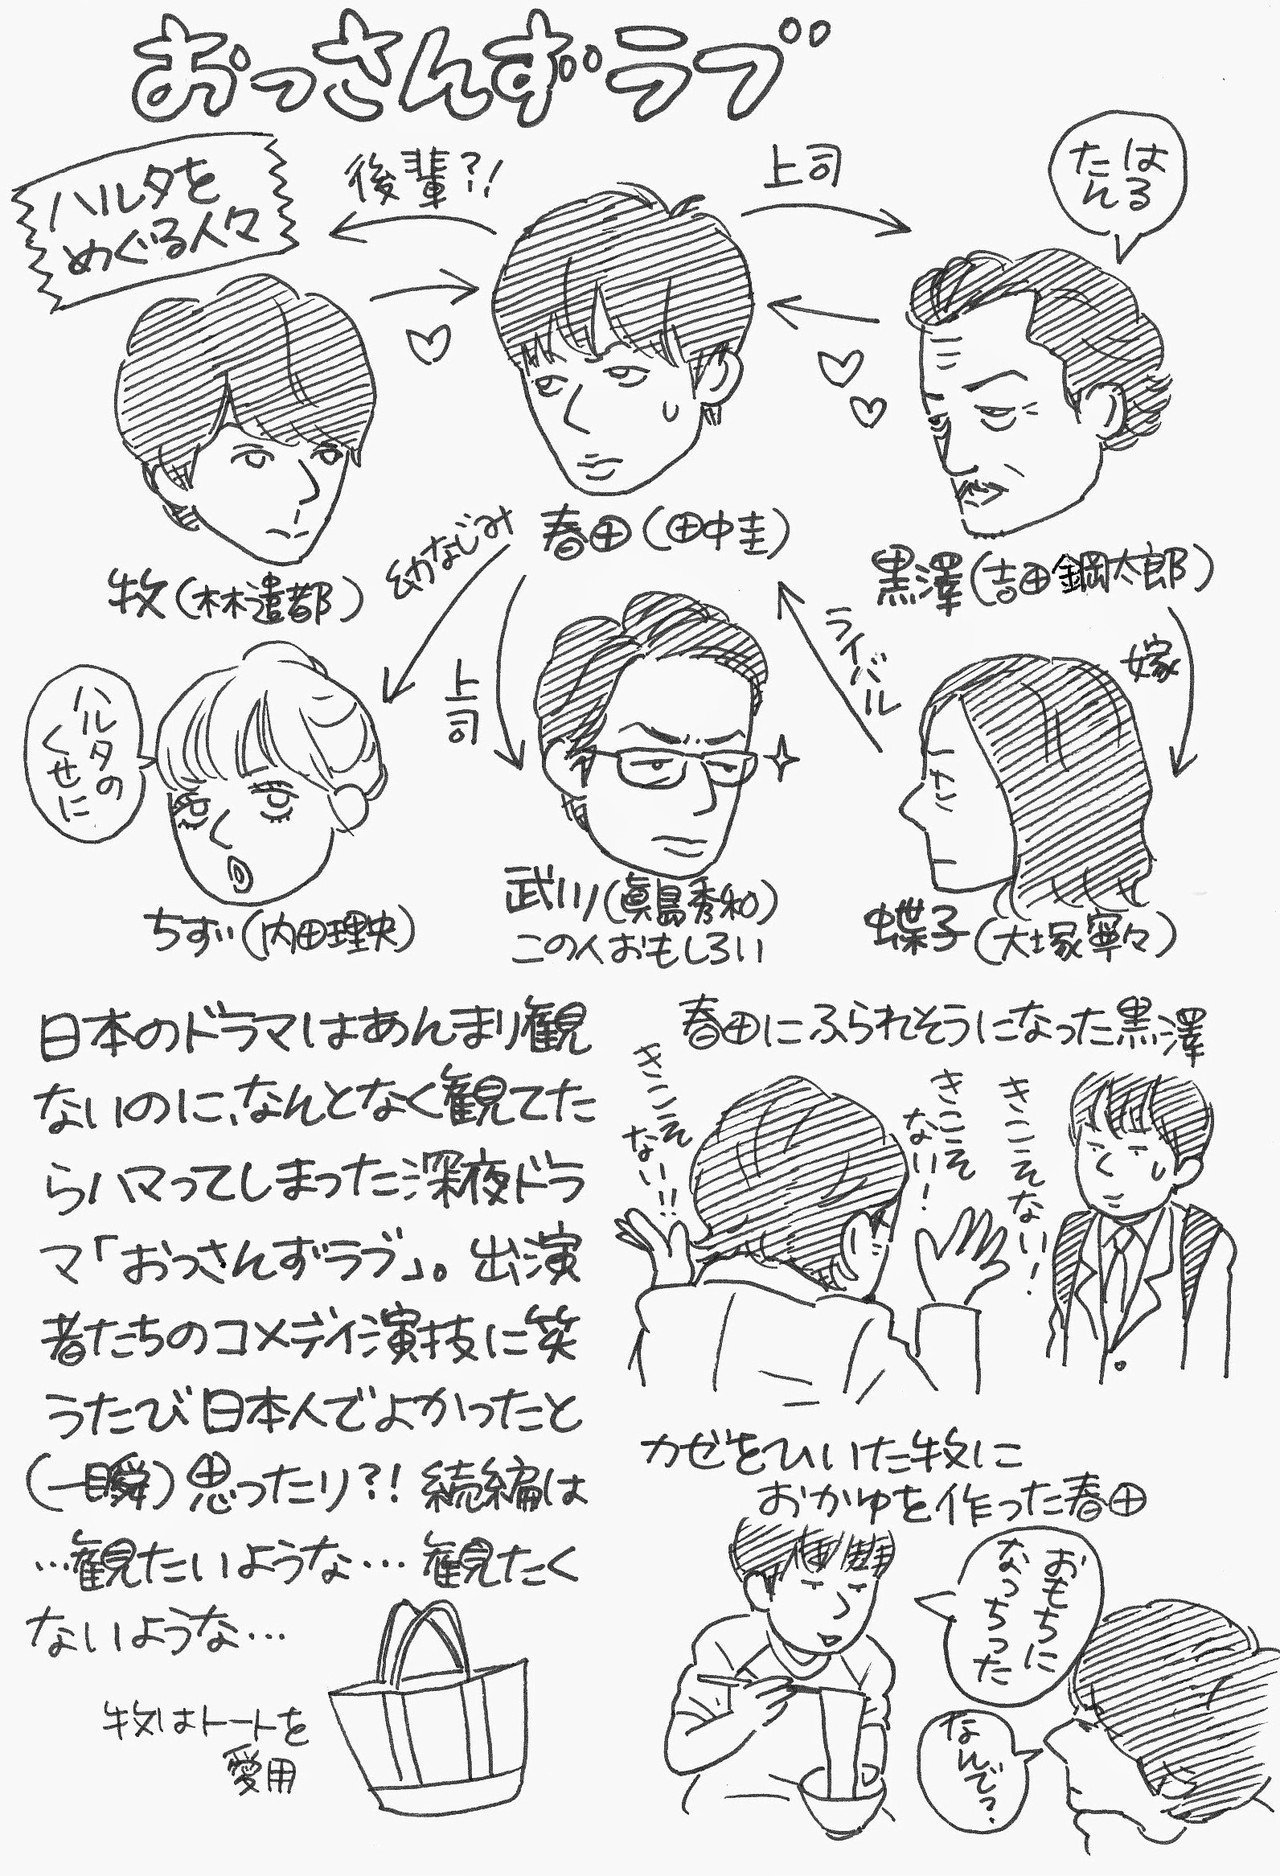 おっさんずラブ
ハルタを
めぐる人々
後輩?!
上司
はる
たん
春田(田中圭)
牧(林遣都)
幼なじみ
黒澤(吉田鋼太郎)
上司
ライバル
嫁
ハルタの
くせに
ちずい(内田理央)
武川(眞島秀和)
この人おもしろい
蝶子(大塚寧々)
日本のドラマはあんまり観
ないのに、なんとなく観てた
らハマってしまった深夜ドラ
マ「おっさんずラブ」。出演
者たちのコメディ演技に笑
うたび日本人でよかったと
(一瞬)思ったり?!続編は
…観たいような…観たく
ないような…
牧はトートを
愛用
春田にふられそうになった黒澤
きこそない!
きこそ
ない!
きこそ
ない!!
カゼをひいた牧に
おかゆを作った春田
おもちに
なっちった
なんで?